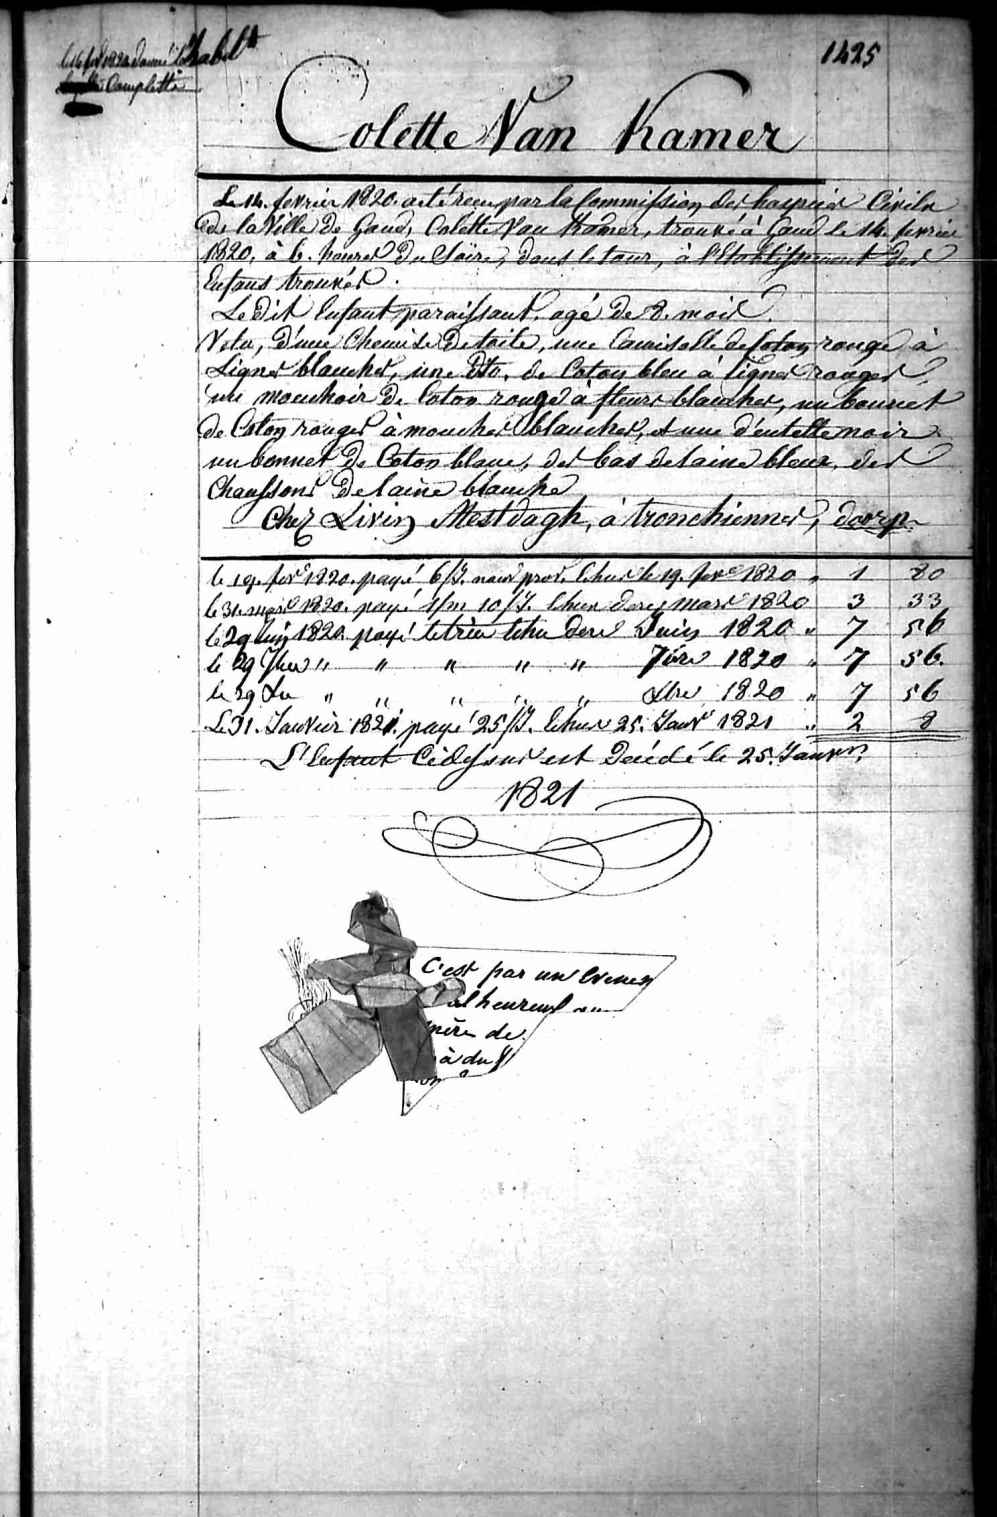 1425
le 16 fev 1820 donné l'habilt
Complette
Colette Van Kamer
Le 14. fevrier 1820. a été recu par la Commission des hospices Civils
de la Ville de Gand, Colette Van Kamer, trouvé à Gand le 14. fevrier
1820, à 6. heures Du Soire, dans le tour, à l'Etablissement Des
Enfans trouvés.
Le Dit Enfant paraissant, agé De 8. mois.
Vetu, D'une Chemise De toile, une Camisolle de Coton rouge à
Lignes blanches, une Dto. de Coton bleu à lignes rouges
un mouchoir De Coton rouge à fleurs blanches, un bonnet
de Coton rouges à mouches blanches, et une d'entelle noir
un bonnet De Coton blanc, des bas de laine bleux, des
Chaussons De laine blanche
Chez Livin Mestdagh, à tronchiennes, dorp
le 19. fevr 1820. payé 6/J. nour prov. échus le 19. fevr 1820 " 1 80
le 31. mars 1820. payé 1/m 10/J. échu dern mars 1820 3 33
le 29 Juin 1820 payé le trim échu dern Juin 1820 " 7 56
le 29 7bre " " " " " 7bre 1820 " 7 56.
le 29 Xbre " " " " " Xbre 1820 " 7 56
Le 31. Janvier 1821. payé 25/J. échus 25. Janvr 1821 " 2 8
L'Enfant Cidessus est Décédé le 25. Janvier
1821
C'est par un Evenem
alheureux
mère de
à du